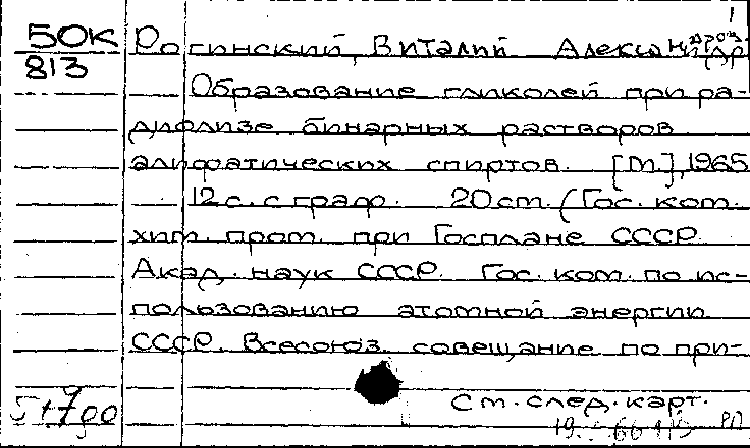 1
50К Рогинский, Виталий Александрович
813
Образование гликолей при ра-
диолизе бинарных растворов
алифатических спиртов. [М.], 1965
12 с. с граф. 20 cm. (Гос. ком.
хим. пром. при Госплане СССР.
Акад. наук СССР. Гос. ком. по ис-
пользованию атомной энергии
СССР. Всесоюз. совещание по при-
См. след. карт.
РП